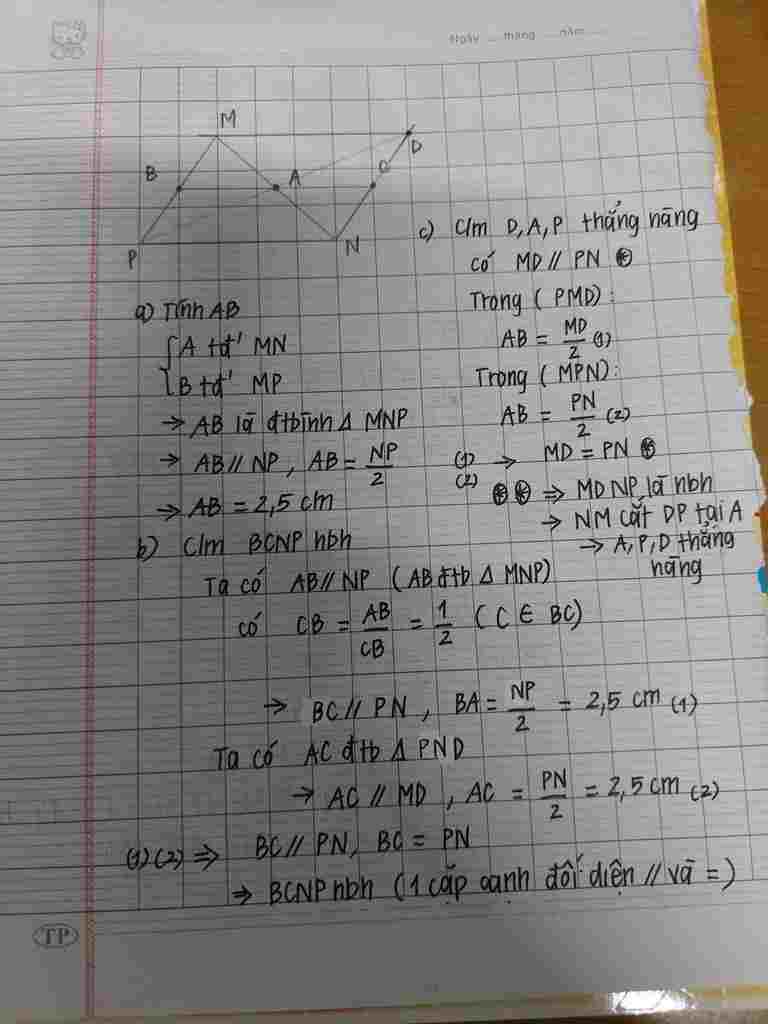 Ngày ... tháng ... năm ...
M
D
B
A
C
P
N
a) Tính AB
{A tđ' MN
{B tđ' MP
→ AB là đtbình Δ MNP
→ AB // NP , AB = NP/2
→ AB = 2,5 cm
b) C/m BCNP hbh
Ta có AB // NP (AB đtb Δ MNP)
có CB = AB/CB = 1/2 (C ∈ BC)
→ BC // PN , BA = NP/2 = 2,5 cm (1)
Ta có AC đtb Δ PND
→ AC // MD , AC = PN/2 = 2,5 cm (2)
(1) (2) ⇒ BC // PN, BC = PN
→ BCNP hbh (1 cặp cạnh đối diện // và =)
c) C/m D, A, P thẳng hàng
có MD // PN ⊛
Trong ( PMD) :
AB = MD/2 (1)
Trong (MPN):
AB = PN/2 (2)
(1) (2) → MD = PN ⊛
⊛ ⊛ ⇒ MDNP là hbh
→ NM cắt DP tại A
→ A, P, D thẳng
hàng
TP